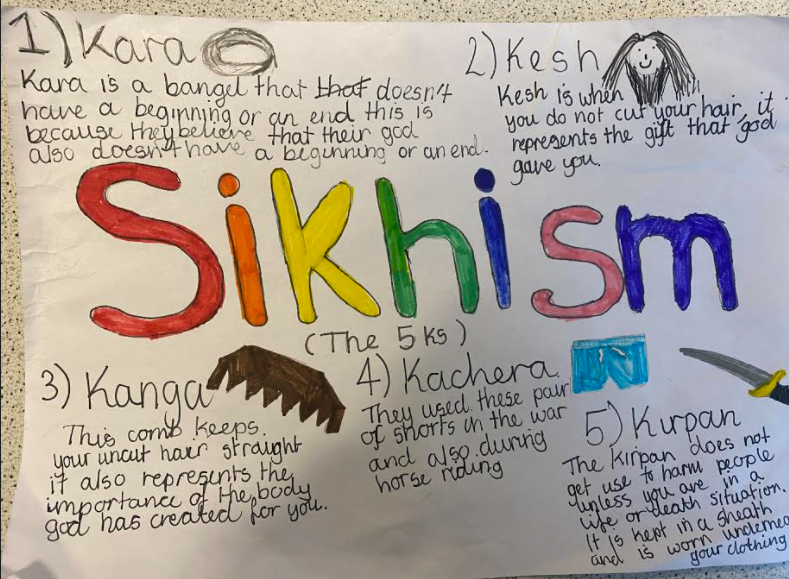 1) Kara
Kara is a bangel that that doesn't
have a beginning or an end this is
because they believe that their god
also doesn't have a beginning or an end.
2) Kesh
Kesh is when
you do not cut your hair, it
represents the gift that god
gave you.
Sikhism
(The 5 ks)
3) Kanga
This comb keeps
your uncut hair straight
it also represents the
importance of the body
god has created for you.
4) Kachera
They used these pair
of shorts in the war
and also during
horse riding
5) Kirpan
The Kirpan does not
get use to harm people
unless you are in a
life or death situation.
It is kept in a sheath
and is worn
your clothing